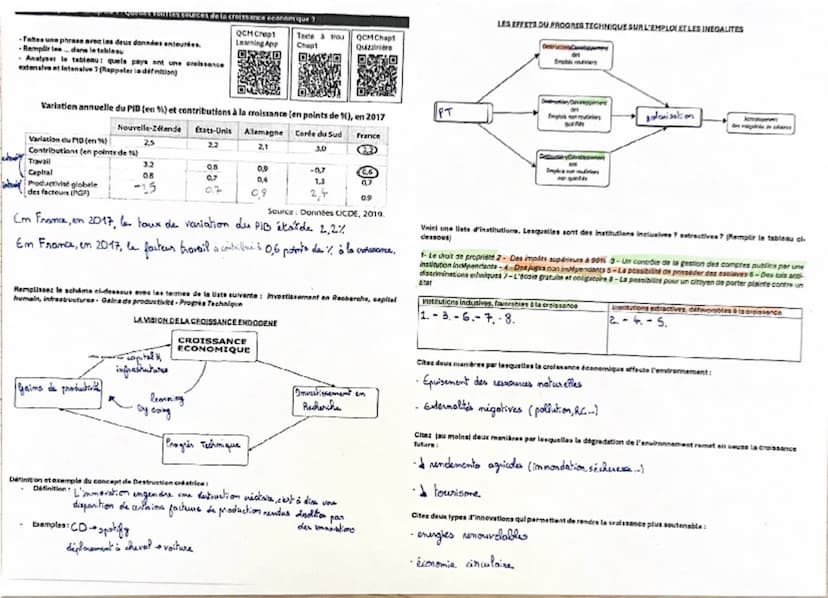 quelles sont les sources de la croissance économique ?
- Faites une phrase avec les deux données entourées.
- Remplir les ... dans le tableau
- Analyser le tableau : quels pays ont une croissance
extensive et intensive ? (Rappeler la définition)
QCM Chap1
Learning App
Texte à trou
Chap1
QCM Chap1
Quizzinière
Variation annuelle du PIB (en %) et contributions à la croissance (en points de %), en 2017
Nouvelle-Zélande États-Unis Allemagne Corée du Sud France
Variation du PIB (en %) 2,5 2,2 2,1 3,0 2,2
Contributions (en points de %)
Travail 3,2 0,8 0,9 -0,7 0,6
Capital 0,8 0,7 0,4 1,3 0,7
Productivité globale
des facteurs (PGF) -1,5 0.7 0,8 2,4 0.9
Source : Données OCDE, 2019.
En France, en 2017, le taux de variation du PIB était de 2,2%
En France, en 2017, le facteur travail a contribué à 0,6 points de % à la croissance.
Remplissez le schéma ci-dessous avec les termes de la liste suivante : Investissement en Recherche, capital
humain, infrastructures - Gains de productivité - Progrès Technique
LA VISION DE LA CROISSANCE ENDOGENE
CROISSANCE
ECONOMIQUE
capital h
infrastructure
Gains de productivité
learning
by doing
Investissement en
Recherche
Progrès Technique
Définition et exemple du concept de Destruction créatrice :
- Définition : L'innovation engendre une destruction créatrice, c'est à dire une
disparition de certains facteurs de production rendus obsolètes par
des innovations
- Exemples : CD → spotify
déplacement à cheval → voiture
LES EFFETS DU PROGRES TECHNIQUE SUR L'EMPLOI ET LES INEGALITES
Destruction/Développement
des
Emplois routiniers
PT
Destruction/Développement
des
Emplois non routiniers
qualifiés
polarisation
Accroissement
des inégalités de salaires
Destruction/Développement
des
Emplois non routiniers
non qualifiés
Voici une liste d'institutions. Lesquelles sont des institutions inclusives ? extractives ? (Remplir le tableau ci-
dessous)
1- Le droit de propriété 2 - Des impôts supérieurs à 90% 3 - Un contrôle de la gestion des comptes publics par une
institution indépendante - 4 - Des juges non indépendants 5 - La possibilité de posséder des esclaves 6 - Des lois anti-
discriminations ethniques 7 - L'école gratuite et obligatoire 8 - La possibilité pour un citoyen de porter plainte contre un
Etat
Institutions inclusives, favorables à la croissance
Institutions extractives, défavorables à la croissance
1. - 3. - 6. - 7. - 8.
2. - 4. - 5.
Citez deux manières par lesquelles la croissance économique affecte l'environnement :
- Épuisement des ressources naturelles
- Externalités négatives (pollution, RC...)
Citez (au moins) deux manières par lesquelles la dégradation de l'environnement remet en cause la croissance
future :
- ↓ rendements agricoles (innondation, sécheresse...)
- ↓ tourisme
Citez deux types d'innovations qui permettent de rendre la croissance plus soutenable :
- energies renouvelables
- économie circulaire